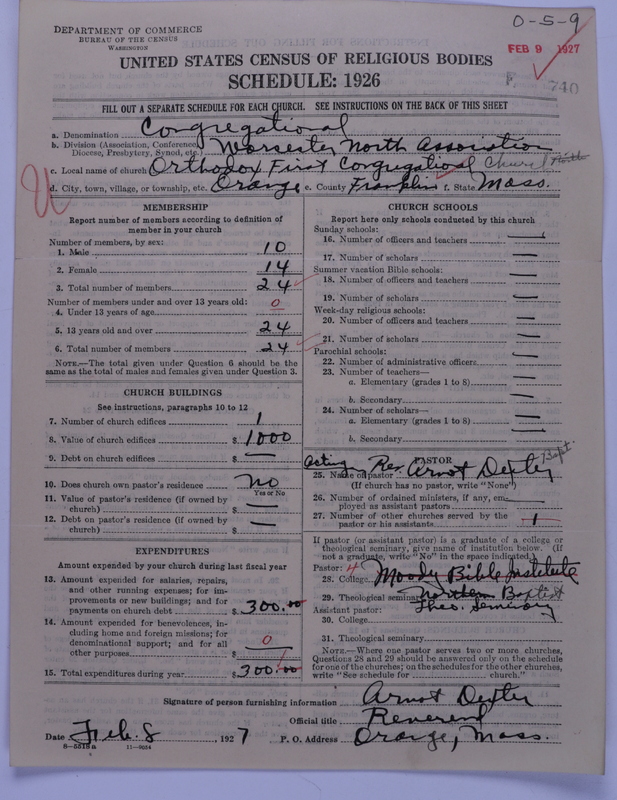 DEPARTMENT OF COMMERCE
BUREAU OF THE CENSUS
WASHINGTON
0-5-9
FEB 9 1927
740
UNITED STATES CENSUS OF RELIGIOUS BODIES
SCHEDULE: 1926
FILL OUT A SEPARATE SCHEDULE FOR EACH CHURCH. SEE INSTRUCTIONS ON THE BACK OF THIS SHEET
a. Denomination Congregational
b. Division (Association, Conference, Diocese, Presbytery, Synod, etc.) Worsester North Association
c. Local name of church Orthodox First Congregational Church North
d. City, town, village, or township, etc. Orange e. County Franklin f. State Mass.
MEMBERSHIP
Report number of members according to definition of
member in your church
Number of members, by sex:
1. Male 10
2. Female 14
3. Total number of members 24
Number of members under and over 13 years old:
4. Under 13 years of age 0
5. 13 years old and over 24
6. Total number of members 24
NOTE.—The total given under Question 6 should be
same as the total of males and females given under Question 3.
CHURCH BUILDINGS
See instructions, paragraphs 10 to 12
7. Number of church edifices 1
8. Value of church edifices $ 1000
9. Debt on church edifices $ —
10. Does church own pastor's residence No
Yes or No
11. Value of pastor's residence (if owned by
church) $ —
12. Debt on pastor's residence (if owned by
church) $ —
EXPENDITURES
Amount expended by your church during last fiscal year
13. Amount expended for salaries, repairs,
and other running expenses; for im-
provements or new buildings; and for
payments on church debt $ 300.00
14. Amount expended for benevolences, in-
cluding home and foreign missions; for
denominational support; and for all
other purposes $ 0
15. Total expenditures during year $ 300.00
CHURCH SCHOOLS
Report here only schools conducted by this church
Sunday schools:
16. Number of officers and teachers —
17. Number of scholars —
Summer vacation Bible schools:
18. Number of officers and teachers —
19. Number of scholars —
Week-day religious schools:
20. Number of officers and teachers —
21. Number of scholars —
Parochial schools:
22. Number of administrative officers —
23. Number of teachers—
a. Elementary (grades 1 to 8) —
b. Secondary —
24. Number of scholars—
a. Elementary (grades 1 to 8) —
b. Secondary —
PASTOR
25. Name of pastor Acting Rev. Arnot Dexter Bapt.
(If church has no pastor, write "None")
26. Number of ordained ministers, if any, em-
ployed as assistant pastors —
27. Number of other churches served by the
pastor or his assistants 1
If pastor (or assistant pastor) is a graduate of a college or
theological seminary, give name of institution below. (If
not a graduate, write "No" in the space indicated.)
Pastor: 4
28. College Moody Bible Institute
29. Theological seminary Northern Baptist
Assistant pastor: Theo. Seminary
30. College
31. Theological seminary
NOTE.—Where one pastor serves two or more churches,
Questions 28 and 29 should be answered only on the schedule
for one of the churches; on the schedules for the other churches,
write "See schedule for ........ church."
Signature of person furnishing information Arnot Dexter
Official title Reverend
Date Feb. 8, 1927 P. O. Address Orange, Mass.
8-5518a 11-9034